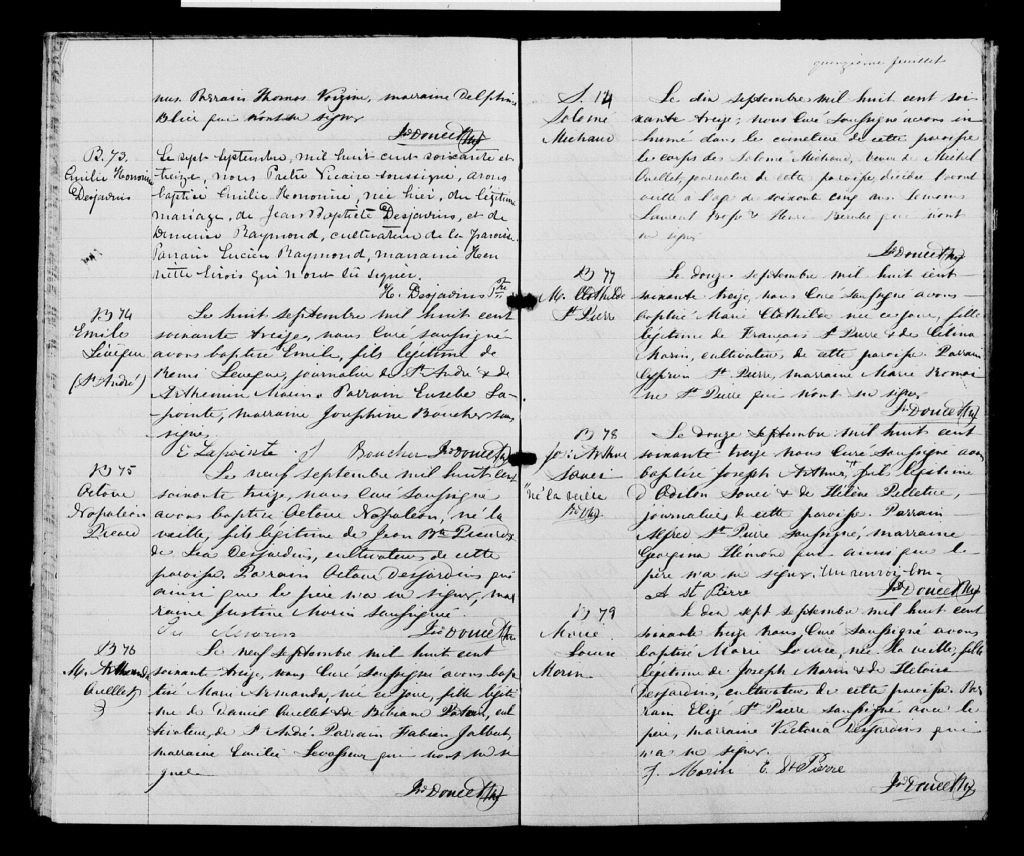 nus. Parrain Thomas Voisine, marraine Delphine
Blier qui n'ont su signer
Jos Doucet Ptre
B. 73.
Emilie Honorine
Desjardins
Le sept septembre, mil huit cent soixante et
treize, nous Prêtre Vicaire soussigné, avons
baptisé Emilie Honorine, née hier, du légitime
mariage, de Jean Baptiste Desjardins, et de
Raymond, cultivateur de la paroisse.
Parrain Lucien Raymond, marraine Hen
riette Sirois qui n'ont su signer.
H. Desjardins Ptre
B 74
Emile
Levêque
(St André)
Le huit septembre mil huit cent
soixante treize, nous Curé soussigné
avons baptisé Emile, fils légitime de
Remi Leveque, journalier de St André & de
Morin. Parrain Eusebe La-
pointe, marraine Josephine Boucher sous
signés
E Lapointe J Boucher Jos Doucet Ptre
B 75
Octave
Napoléon
Picard
Le neuf septembre mil huit cent
soixante treize, nous Curé soussigné
avons baptisé Octave Napoléon, né la
veille, fils légitime de Jean Bte &
de Léa Desjardins, cultivateur de cette
paroisse. Parrain Octave Desjardins qui
ainsi que le père n'a su signer, mar
raine Justine Morin soussignée
Jos Doucet Ptre
B 76
M. Armanda
Ouellet
Le neuf septembre mil huit cent
soixante treize, nous Curé soussigné avons bap
tisé Marie Armanda, née ce jour, fille légiti
me de Daniel Ouellet & de Bibiane cul
tivateur, de St André. Parrain Fabien Jalbert,
marraine Emilie Levasseur qui n'ont su si
gner
Jos Doucet Ptre
quinzième feuillet
S. 14
Solomé
Michaud
Le dix septembre mil huit cent soi
xante treize; nous Curé soussigné avons in
humé dans le cimetière de cette paroisse
le corps de Solomé Michaud, veuve de Michel
Ouellet, journalier de cette paroisse, décédée l'avant
veille à l'age de soixante cinq ans. Temoins
Laurent & Henri Berubé qui n'ont
su signer
Jos Doucet Ptre
B 77
M. Clothilde
St Pierre
Le douze septembre mil huit cent
soixante treize, nous Curé soussigné avons
baptisé Marie Clothilde née ce jour, fille
légitime de François St Pierre & de Celina
Morin, cultivateur de cette paroisse. Parrain
Cyprien St Pierre, marraine Marie Romai
ne St Pierre qui n'ont su signer
Jos Doucet Ptre
B 78
Jos: Arthur
Soucy
"né la veille
Jos Ptre
Le douze septembre mil huit cent
soixante treize nous Curé soussigné avons
baptisé Joseph Arthur," fils légitime
d'Odilon Souci & de Hélène Pelletier,
journalier de cette paroisse. Parrain
Alfred St Pierre soussigné, marraine
Georgina Hémond qui ainsi que le
père n'a su signer. Un renvoi bon.
A St Pierre Jos Doucet Ptre
B 79
Marie
Louise
Morin
Le dix sept septembre mil huit cent
soixante treize nous Curé soussigné avons
baptisé Marie Louise, née la veille, fille
légitime de Joseph Morin & de Heloise
Desjardins, cultivateur de cette paroisse. Par
rain Elizé St Pierre soussigné avec le
père, marraine Victoria Desjardins qui
n'a su signer.
J. Morin E. St Pierre
Jos Doucet Ptre